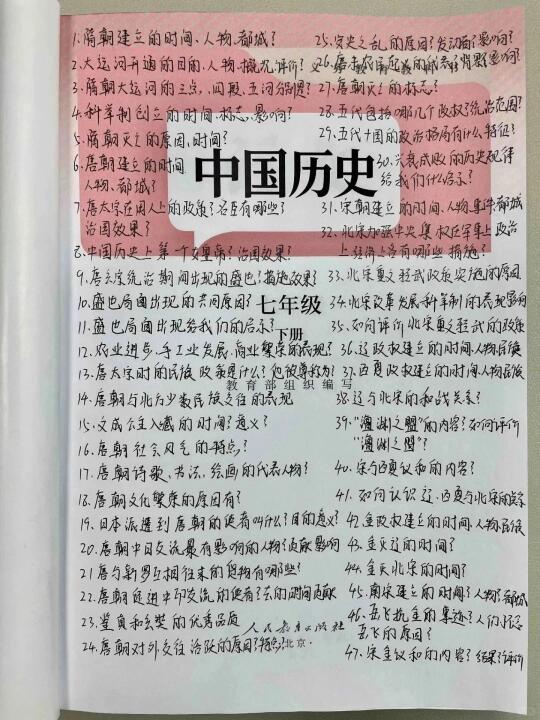 1. 隋朝建立的时间、人物、都城?
2. 大运河开通的目的、人物、概况、评价?
3. 隋朝大运河的三点、四段、五河分别是?
4. 科举制创立的时间、标志、影响?
5. 隋朝灭亡的原因,时间?
6. 唐朝建立的时间
人物、都城?
7. 唐太宗在用人上的政策?名臣有哪些?
治国效果?
8. 中国历史上第一个女皇帝?治国效果?
9. 唐玄宗统治期间出现的盛世?措施效果?
10. 盛世局面出现的共同原因?
11. 盛世局面出现给我们的启示?
12. 农业进步、手工业发展、商业繁荣的表现?
13. 唐太宗时的民族政策是什么?他被尊称为?
14. 唐朝与北方少数民族交往的表现
15. 文成公主入藏的时间?意义?
16. 唐朝社会风气的特点?
17. 唐朝诗歌、书法、绘画的代表人物?
18. 唐朝文化繁荣的原因有?
19. 日本派遣到唐朝的使者叫什么?目的意义?
20. 唐朝中日交流最有影响的人物?贡献影响
21 唐与新罗互相往来的货物有哪些?
22. 唐朝促进中印交流的使者?去的时间贡献
23. 鉴真和玄奘的优秀品质
24. 唐朝对外交往活跃的原因?特点?
中国历史
七年级
下册
教育部组织编写
人民教育出版社
·北京·
25. 安史之乱的原因?发动者?影响?
26. 唐末农民起义的代表?背景影响?
27. 唐朝灭亡的标志?
28. 五代包括哪几个政权?统治范围?
29. 五代十国的政治格局有什么特征?
30. 兴衰成败的历史规律
给我们什么启示?
31. 宋朝建立的时间、人物事件都城
32. 北宋加强中央集权在军事上政治
上经济上各有哪些措施?
33. 北宋重文轻武政策实施的原因
34. 北宋改革发展科举制的表现影响
35. 如何评价北宋重文轻武的政策
36. 辽政权建立的时间、人物民族
37. 西夏政权建立的时间、人物民族
38. 辽与北宋的和战关系?
39. “澶渊之盟”的内容?如何评价
“澶渊之盟”?
40. 宋与西夏议和的内容?
41. 如何认识辽、西夏与北宋的
42. 金政权建立的时间、人物民族
43. 金灭辽的时间?
44. 金灭北宋的时间?
45. 南宋建立的时间?人物?都城
46. 岳飞抗金的事迹?人们怀念
岳飞的原因?
47. 宋金议和的内容?结果?评价